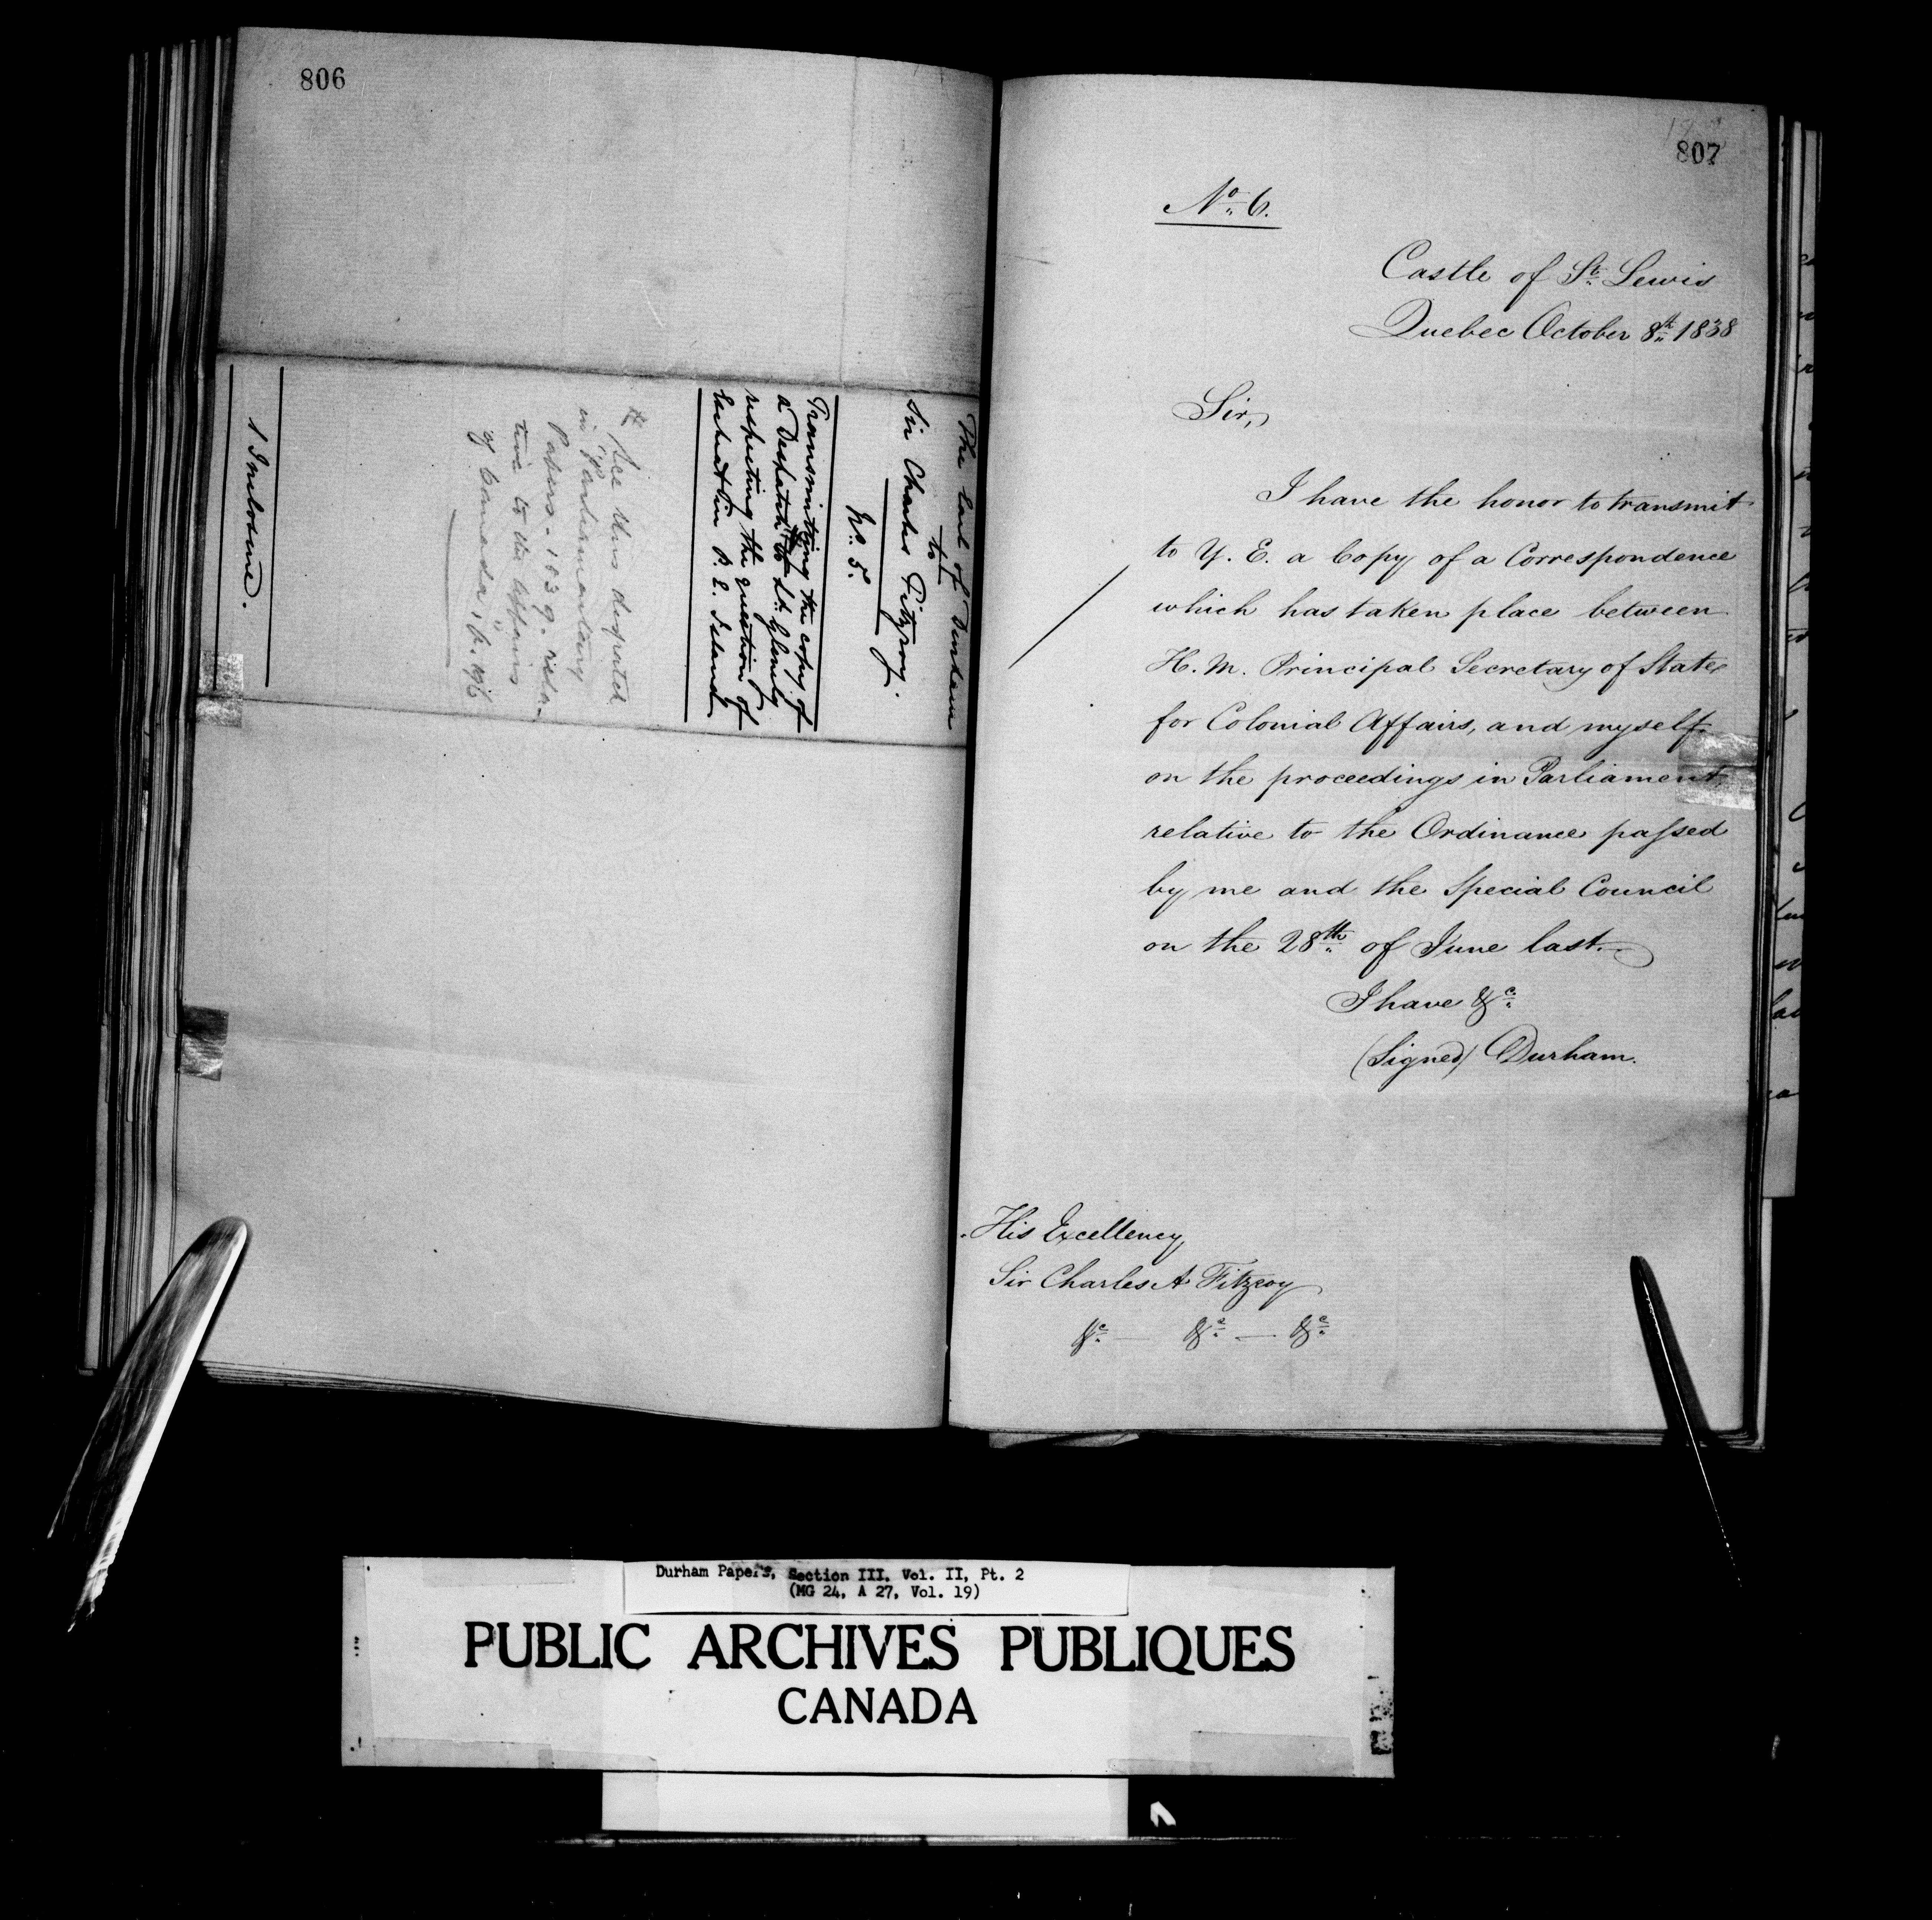 806
The Earl of Durham
to
Sir Charles Fitzroy.
No. 5.
Transmitting the copy of
a Despatch to Ld. Glenelg
respecting the question of
Escheat in P. E. Island
* See this despatch
in "Parliamentary
Papers - 1839 - rela-
tive to the Affairs
of Canada", p. 196
1 Inclosure.
807
No. 6.
Castle of St. Lewis
Quebec October 8th 1838
Sir,
I have the honor to transmit
to Y. E. a Copy of a Correspondence
which has taken place between
H. M. Principal Secretary of State
for Colonial Affairs, and myself
on the proceedings in Parliament
relative to the Ordinance passed
by me and the Special Council
on the 28th of June last.
I have &c.
(Signed) Durham.
His Excellency
Sir Charles A Fitzroy
&c. — &c. — &c.
Durham Papers, Section III, Vol. II, Pt. 2
(MG 24, A 27, Vol. 19)
PUBLIC ARCHIVES PUBLIQUES
CANADA